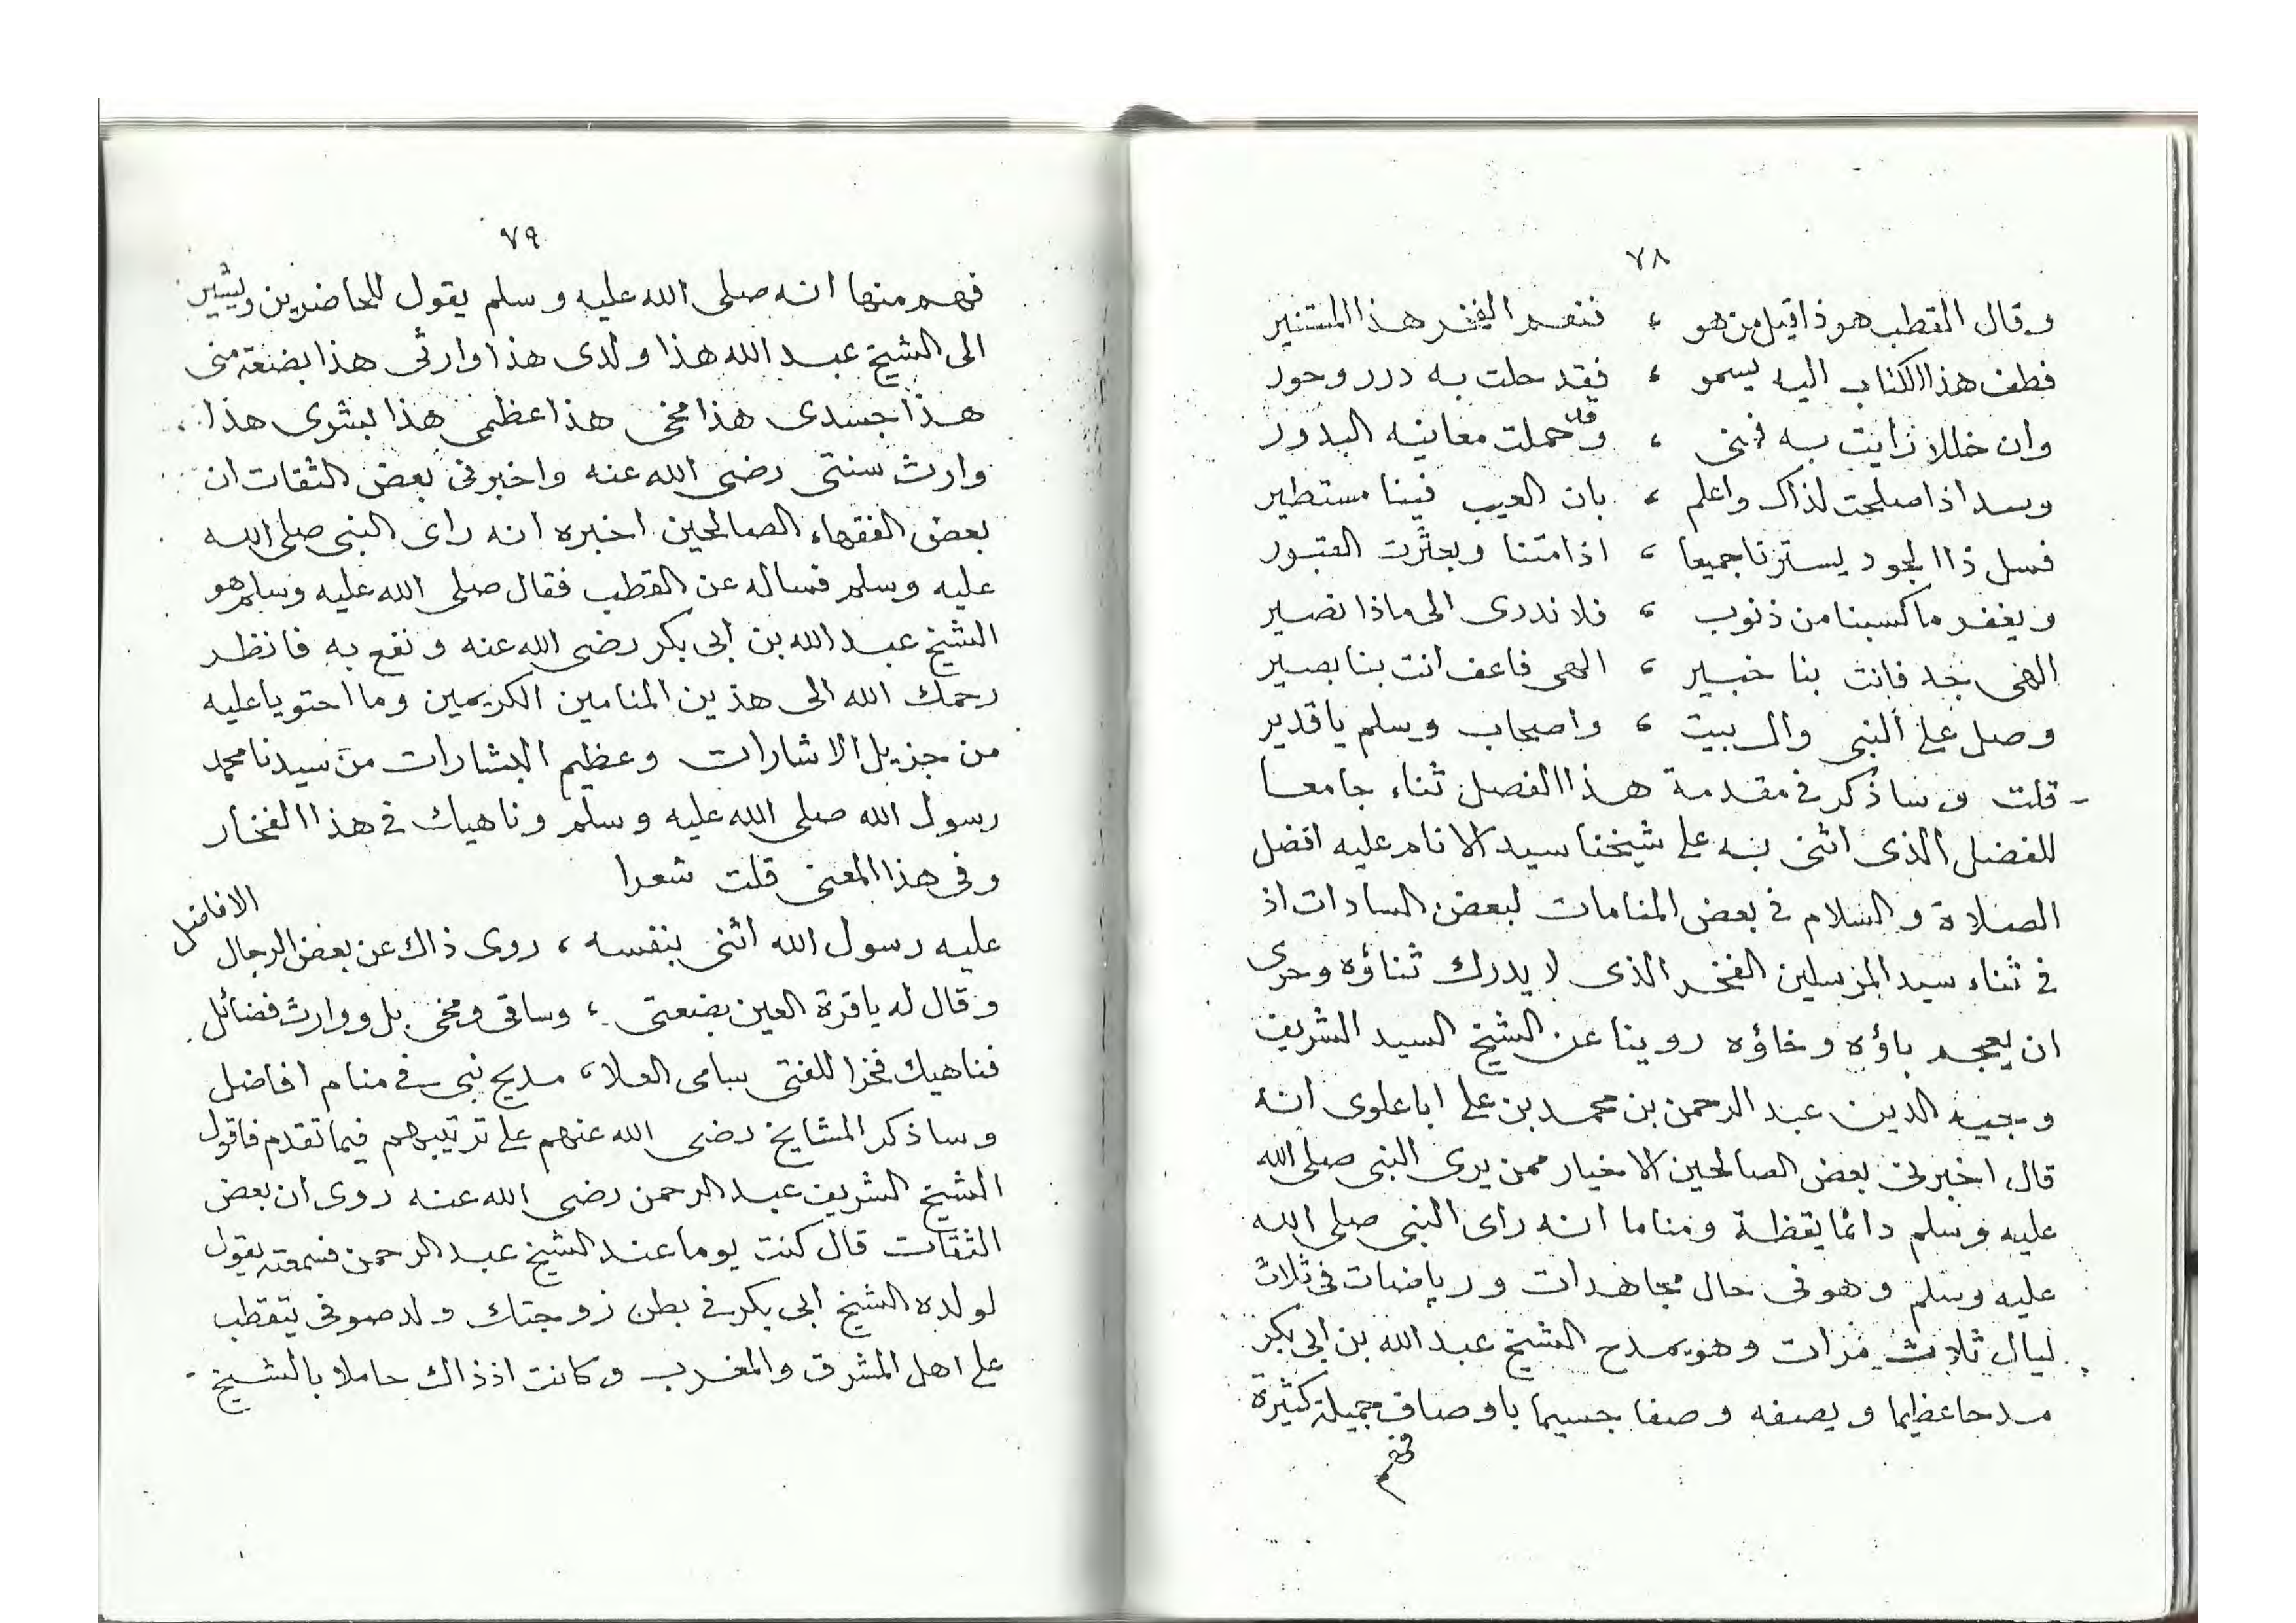 ٧٨
وقال القطب هو ذا قيل من هو ، فنعم الفخر هذا المستنير
فطف هذا الكتاب اليه يسمو ، فقد حلت به درر وحور
وان خللا رايت به فنى ، وقد حملت معانيه البدور
وسد اذا صلحت لذاك واعلم ، بان العيب فينا مستطير
فسل ذا الجود يسترنا جميعا ، اذا متنا وبعثرت القبور
ويغفر ما كسبنا من ذنوب ، فلا ندرى الى ماذا نصير
الهى جد فانت بنا خبير ، الهى فاعف انت بنا بصير
وصل على النبى وال بيت ، واصحاب وسلم يا قدير
قلت وساذكر فى مقدمة هذا الفصل ثناء جامعا
للفضل الذى اثنى به على شيخنا سيد الانام عليه افضل
الصلاة والسلام فى بعض المنامات لبعض السادات اذ
فى ثناء سيد المرسلين الفخر الذى لا يدرك ثناؤه وحرى
ان يعجم باؤه وخاؤه روينا عن الشيخ السيد الشريف
وجيه الدين عبد الرحمن بن محمد بن على اباعلوى انه
قال اخبرنى بعض الصالحين الاخيار ممن يرى النبى صلى الله
عليه وسلم دائما يقظة ومناما انه راى النبى صلى الله
عليه وسلم وهو فى حال مجاهدات ورياضات فى ثلاث
ليال ثلاث مرات وهو يمدح الشيخ عبد الله بن ابى بكر
مدحا عظيما ويصفه وصفا جسيما باوصاف جميلة كثيرة
فهم
٧٩
فهم منها انه صلى الله عليه وسلم يقول للحاضرين ويشير
الى الشيخ عبد الله هذا ولدى هذا وارثى هذا بضعة منى
هذا جسدى هذا مخى هذا عظمى هذا بشرى هذا
وارث سنتى رضى الله عنه واخبرنى بعض الثقات ان
بعض الفقهاء الصالحين اخبره انه راى النبى صلى الله
عليه وسلم فساله عن القطب فقال صلى الله عليه وسلم هو
الشيخ عبد الله بن ابى بكر رضى الله عنه ونفع به فانظر
رحمك الله الى هذين المنامين الكريمين وما احتويا عليه
من جزيل الاشارات وعظيم البشارات من سيدنا محمد
رسول الله صلى الله عليه وسلم وناهيك فى هذا الفخار
وفى هذا المعنى قلت شعرا
عليه رسول الله اثنى بنفسه ، روى ذاك عن بعض الرجال الافاضل
وقال له يا قرة العين بضعتى ، وساقى ومخى بل ووارث فضائل
فناهيك فخرا للفتى سامى العلا ، مديح نبى فى منام افاضل
وساذكر المشايخ رضى الله عنهم على ترتيبهم فيما تقدم فاقول
الشيخ الشريف عبد الرحمن رضى الله عنه روى ان بعض
الثقات قال كنت يوما عند الشيخ عبد الرحمن فسمعته يقول
لولده الشيخ ابى بكر فى بطن زوجتك ولد صوفى يتقطب
على اهل المشرق والمغرب وكانت اذ ذاك حاملا بالشيخ